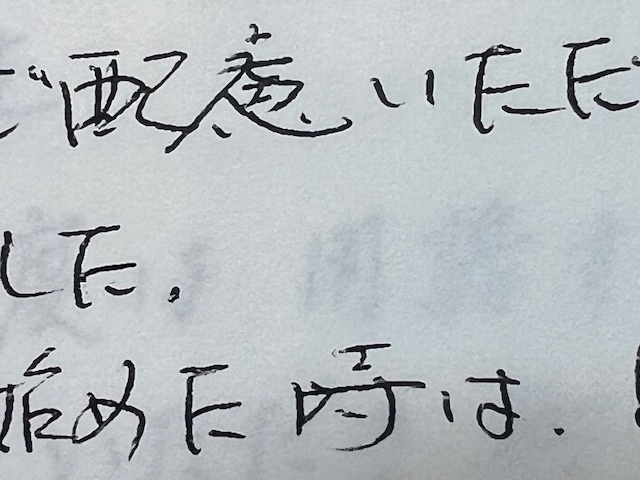 ご配慮いただ
した.
始めた時は.